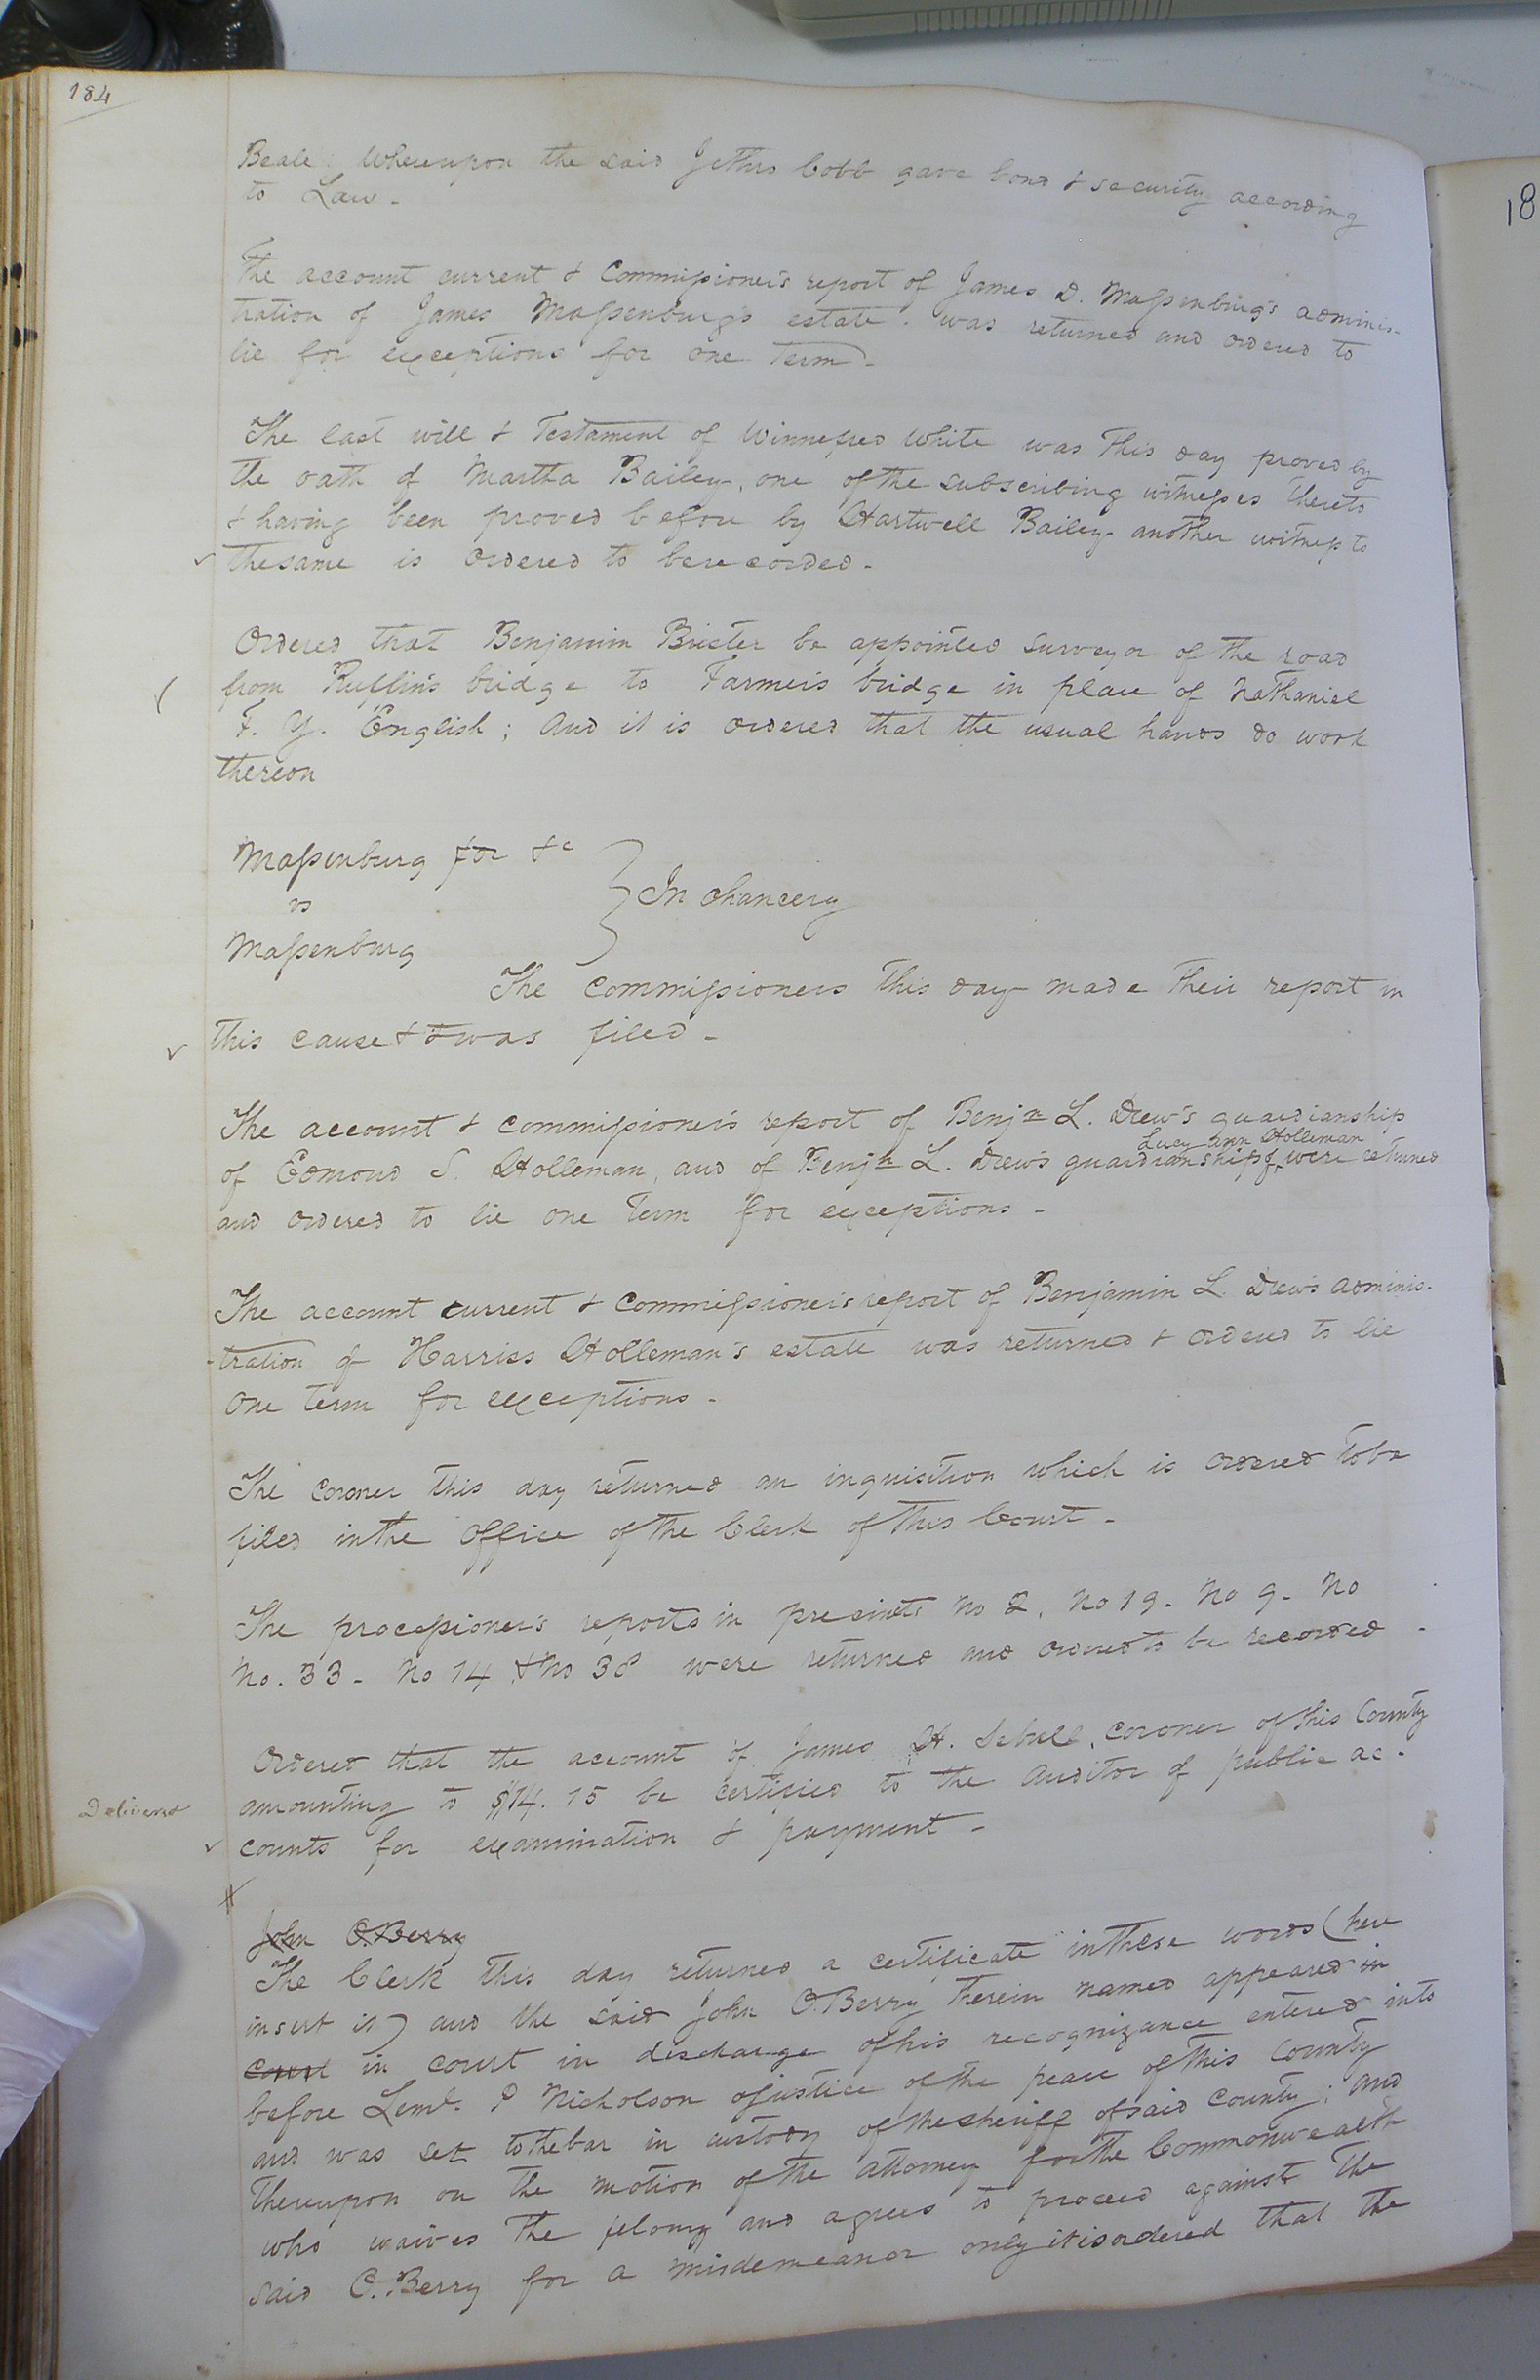 184
18
Beale. Whereupon the said Jethro Cobb gave bond & security according
to Law -
The account current & Commissioner's report of James D. Massenburg's adminis-
tration of James Massenburg's estate. was returned and ordered to
lie for exceptions for one Term -
The last will & Testament of Winnefred White was This day proved by
the oath of Martha Bailey, one of the subscribing witnesses thereto
& having been proved before by Hartwell Bailey another witness to
the same is ordered to be recorded -
Ordered that Benjamin Brister be appointed surveyor of the road
from Ruffin's bridge to Farmer's bridge in place of Nathaniel
F. Y. English; And it is ordered that the usual hands do work
thereon
Massenburg for &c
vs
In chancery
Massenburg
The Commissioners this day made their report in
this cause & it was filed -
The account & commissioner's report of Benjn L. Drew's guardianship
of Edmond S. Holleman, and of Benjn L. Drew's guardianship of Lucy Ann Holleman were returned
and ordered to lie one Term for exceptions -
The account current & Commissioner's report of Benjamin L. Drew's adminis-
-tration of Harriss Holleman's estate was returned & ordered to lie
one term for exceptions -
The coroner this day returned an inquisition which is ordered to be
filed in the office of the Clerk of this Court -
The processioner's reports in precincts No 2, No 19 - No 9 - No
No. 33 - No 14 & No 38 were returned and ordered to be recorded -
Ordered that the account of James H. Sebrell, coroner of this County
amounting to $14.15 be certified to the auditor of public ac-
Delivered
counts for examination & payment -
John O. Berry
The Clerk this day returned a certificate in these words (here
insert it) and the said John O. Berry therein named appeared in
Court in court in discharge of his recognizance entered into
before Leml. P Nicholson a justice of the peace of this County
and was set to the bar in custody of the sheriff of said County; and
thereupon on the motion of the attorney for the Commonwealth
who waives the felony and agrees to proceed against the
said O. Berry for a misdemeanor only it is ordered that the